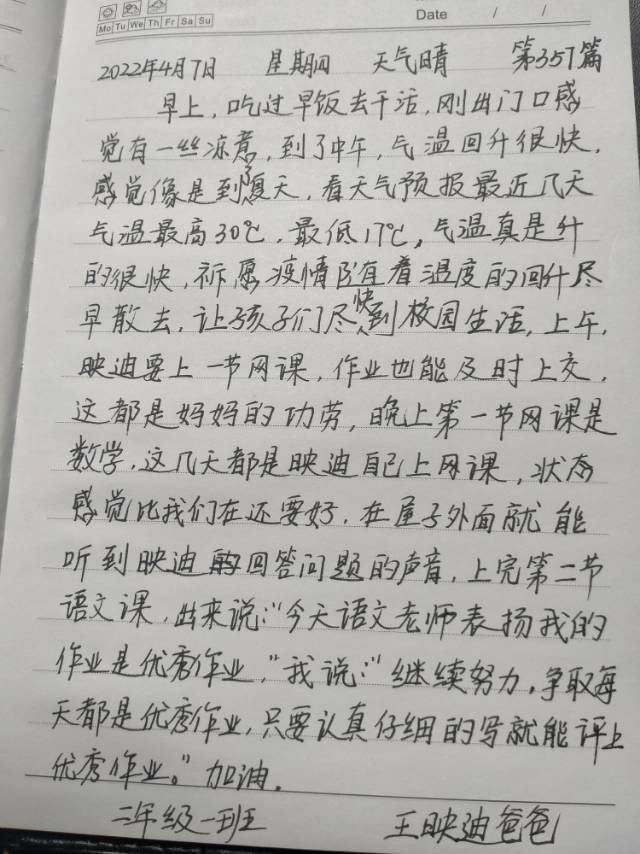 Mo Tu We Th Fr Sa Su
Date / /
2022年4月7日 星期四 天气晴 第357篇
早上,吃过早饭去干活,刚出门口感
觉有一丝凉意,到了中午,气温回升很快,
感觉像是到了夏天,看天气预报最近几天
气温最高30℃,最低17℃,气温真是升
的很快,祈愿疫情随着温度的回升尽
早散去,让孩子们尽快到校园生活,上午,
映迪要上一节网课,作业也能及时上交,
这都是妈妈的功劳,晚上第一节网课是
数学,这几天都是映迪自己上网课,状态
感觉比我们在还要好,在屋子外面就能
听到映迪的回答问题的声音,上完第二节
语文课,出来说:“今天语文老师表扬我的
作业是优秀作业,”我说:“继续努力,争取每
天都是优秀作业,只要认真仔细的写就能评上
优秀作业。”加油.
二年级一班 王映迪爸爸